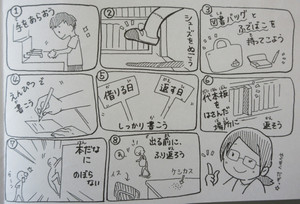 ①
手をあらおう
②
シューズを
ぬごう
③
図書バッグと
ふでばこを
持ってこよう
④
えんぴつで
書こう
⑤
借りる日
返す日
しっかり書こう
⑥
代本板を
はさんだ
場所に
返そう
⑦
本だなに
のぼら
ない
⑧
出る前に、
ふり返ろう
イス
ケシカス